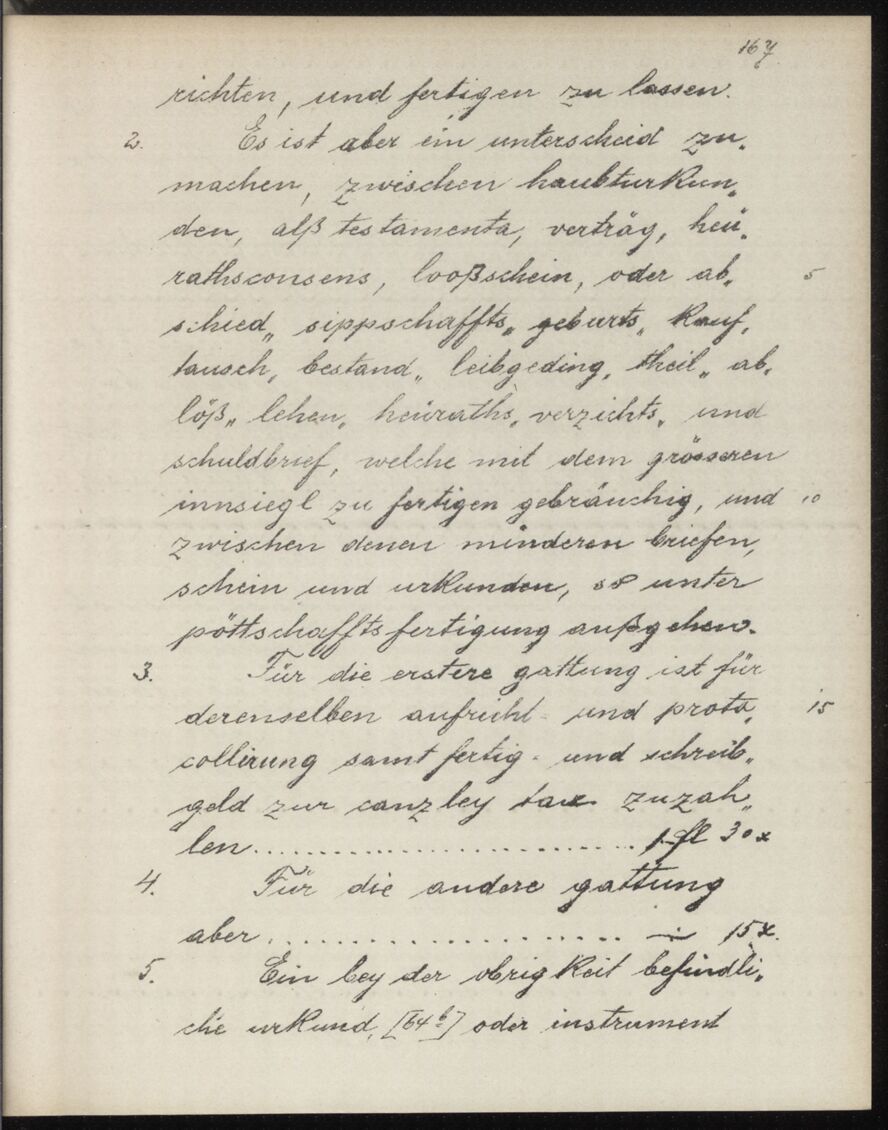 167.
richten, und fertigen zu lassen.
2. Es ist aber ein unterscheid zu„
machen, zwischen haubturkun„
den, alß testamenta, verträg, heü„
rathsconsens, looßschein, oder ab„ 5
schied„ sippschaffts„ geburts„ Kauf„
tausch„ bestand„ leibgeding„ theil„ ab„
löß„ lehen„ heüraths„ verzichts„ und
schuldbrief, welche mit dem grösseren
innsiegl zu fertigen gebräuchig, und 10
zwischen denen minderen briefen,
schein und urkunden, so unter
pöttschaffts fertigung außgehen.
3. Für die erstere gattung ist für
derenselben aufricht- und proto„ 15
collirung samt fertig- und schreib„
geld zur canzley tax zuzah„
len .............................. 1 fl 30 x
4. Für die andere gattung
aber ........................ — 15 x.
5. Ein bey der obrigkeit befindli„
che urkund, [64b] oder instrument